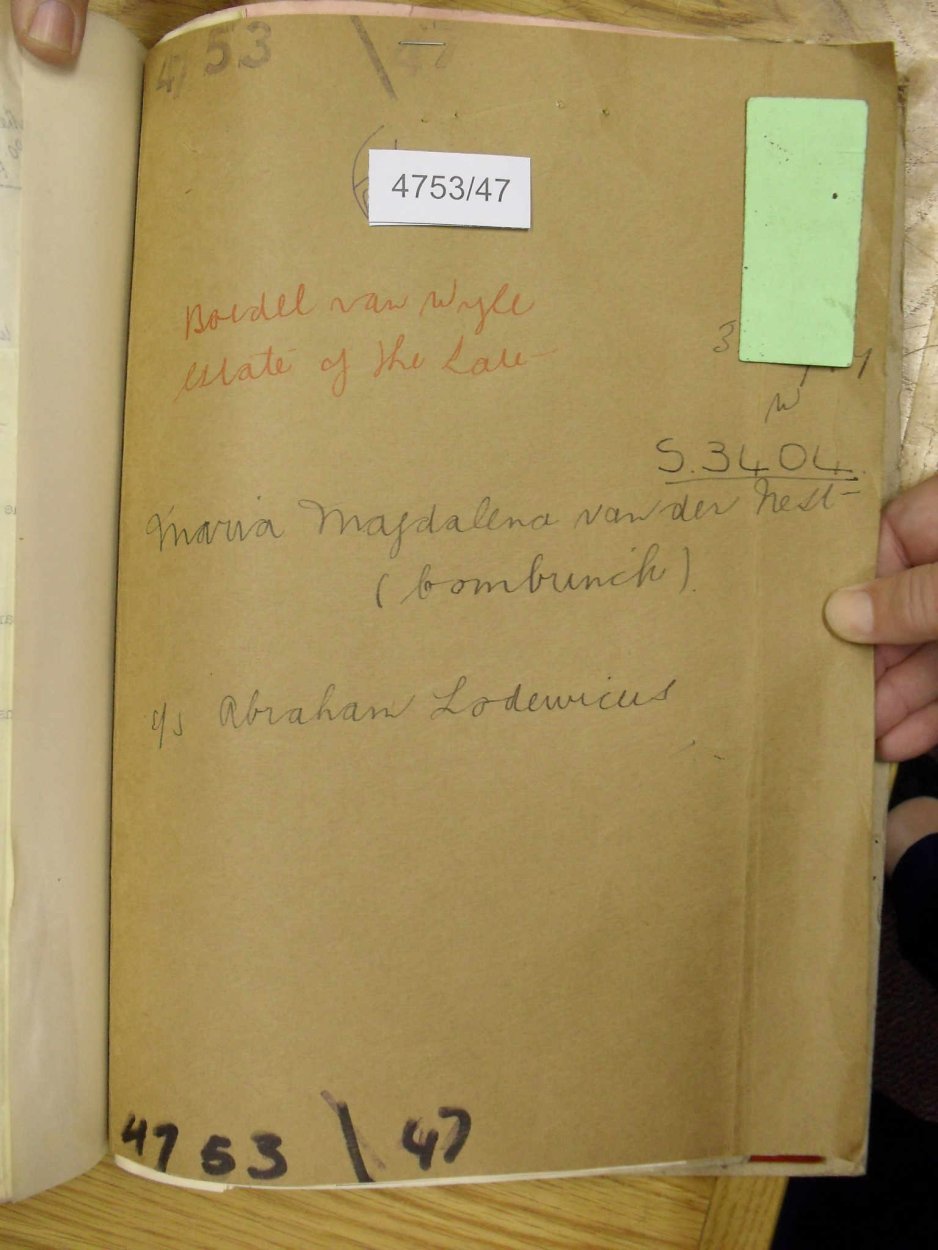 4753 \ 47
4753/47
Boedel van Wyle
Estate of the Late
3
S.3404
Maria Magdalena van der Nest
(Combrinck)
c/s Abraham Lodewicus
4753 \ 47